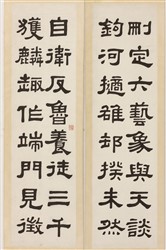 刪定六藝象與天談
鉤河擿雒卻揆未然
自衛反魯養徒三千
獲麟趣作端門見徵